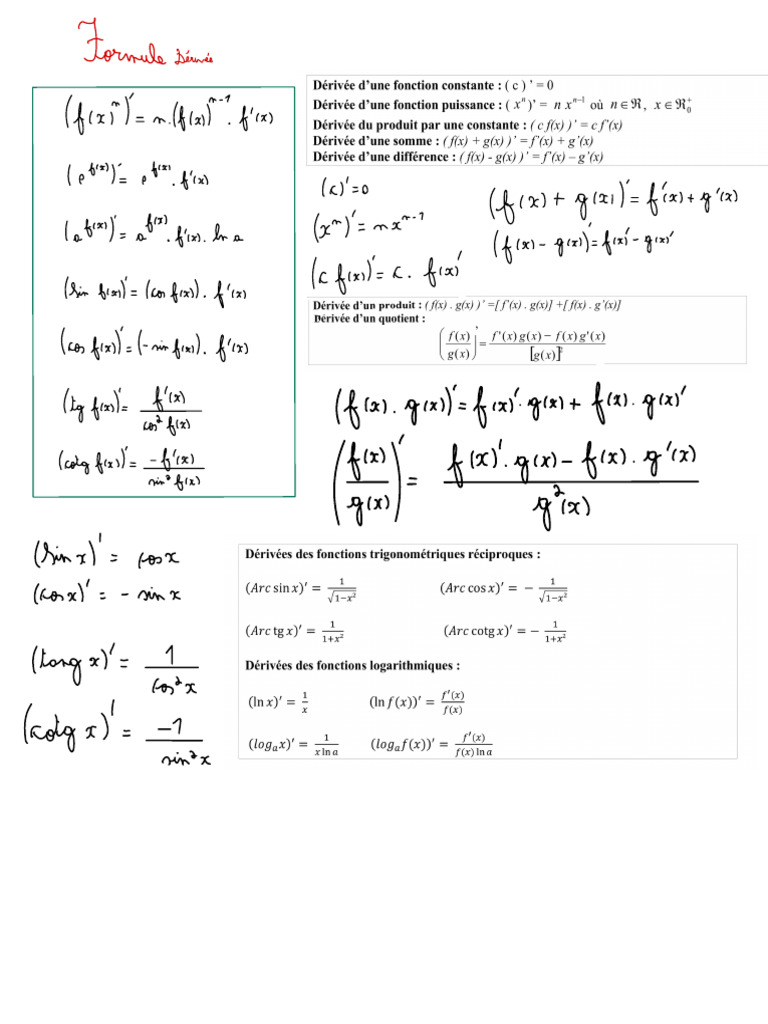 Formule Dérivée
(f(x)^n)' = n.(f(x))^{n-1} . f'(x)
(e^{f(x)})' = e^{f(x)} . f'(x)
(a^{f(x)})' = a^{f(x)} . f'(x) . ln a
(sin f(x))' = (cos f(x)) . f'(x)
(cos f(x))' = (-sin f(x)) . f'(x)
(tg f(x))' = f'(x) / cos² f(x)
(cotg f(x))' = -f'(x) / sin² f(x)
Dérivée d'une fonction constante : ( c ) ' = 0
Dérivée d'une fonction puissance : ( x^n )' = n x^{n-1} où n ∈ ℜ, x ∈ ℜ₀⁺
Dérivée du produit par une constante : ( c f(x) ) ' = c f'(x)
Dérivée d'une somme : ( f(x) + g(x) ) ' = f'(x) + g'(x)
Dérivée d'une différence : ( f(x) - g(x) ) ' = f'(x) – g'(x)
(c)' = 0
(x^n)' = nx^{n-1}
(c f(x))' = c . f(x)'
(f(x) + g(x))' = f'(x) + g'(x)
(f(x) - g(x))' = f(x)' - g(x)'
Dérivée d'un produit : ( f(x) . g(x) ) ' =[ f'(x) . g(x)] +[ f(x) . g'(x)]
Dérivée d'un quotient :
( f(x) / g(x) )' = f'(x) g(x) − f(x) g'(x) / [g(x)]²
(f(x) . g(x))' = f(x)' . g(x) + f(x) . g(x)'
( f(x) / g(x) )' = f(x)' . g(x) - f(x) . g'(x) / g²(x)
(sin x)' = cos x
(cos x)' = - sin x
(tang x)' = 1 / cos² x
(cotg x)' = -1 / sin² x
Dérivées des fonctions trigonométriques réciproques :
(Arc sin x)' = 1 / √1−x² (Arc cos x)' = − 1 / √1−x²
(Arc tg x)' = 1 / 1+x² (Arc cotg x)' = − 1 / 1+x²
Dérivées des fonctions logarithmiques :
(ln x)' = 1 / x (ln f(x))' = f'(x) / f(x)
(log_a x)' = 1 / x ln a (log_a f(x))' = f'(x) / f(x) ln a